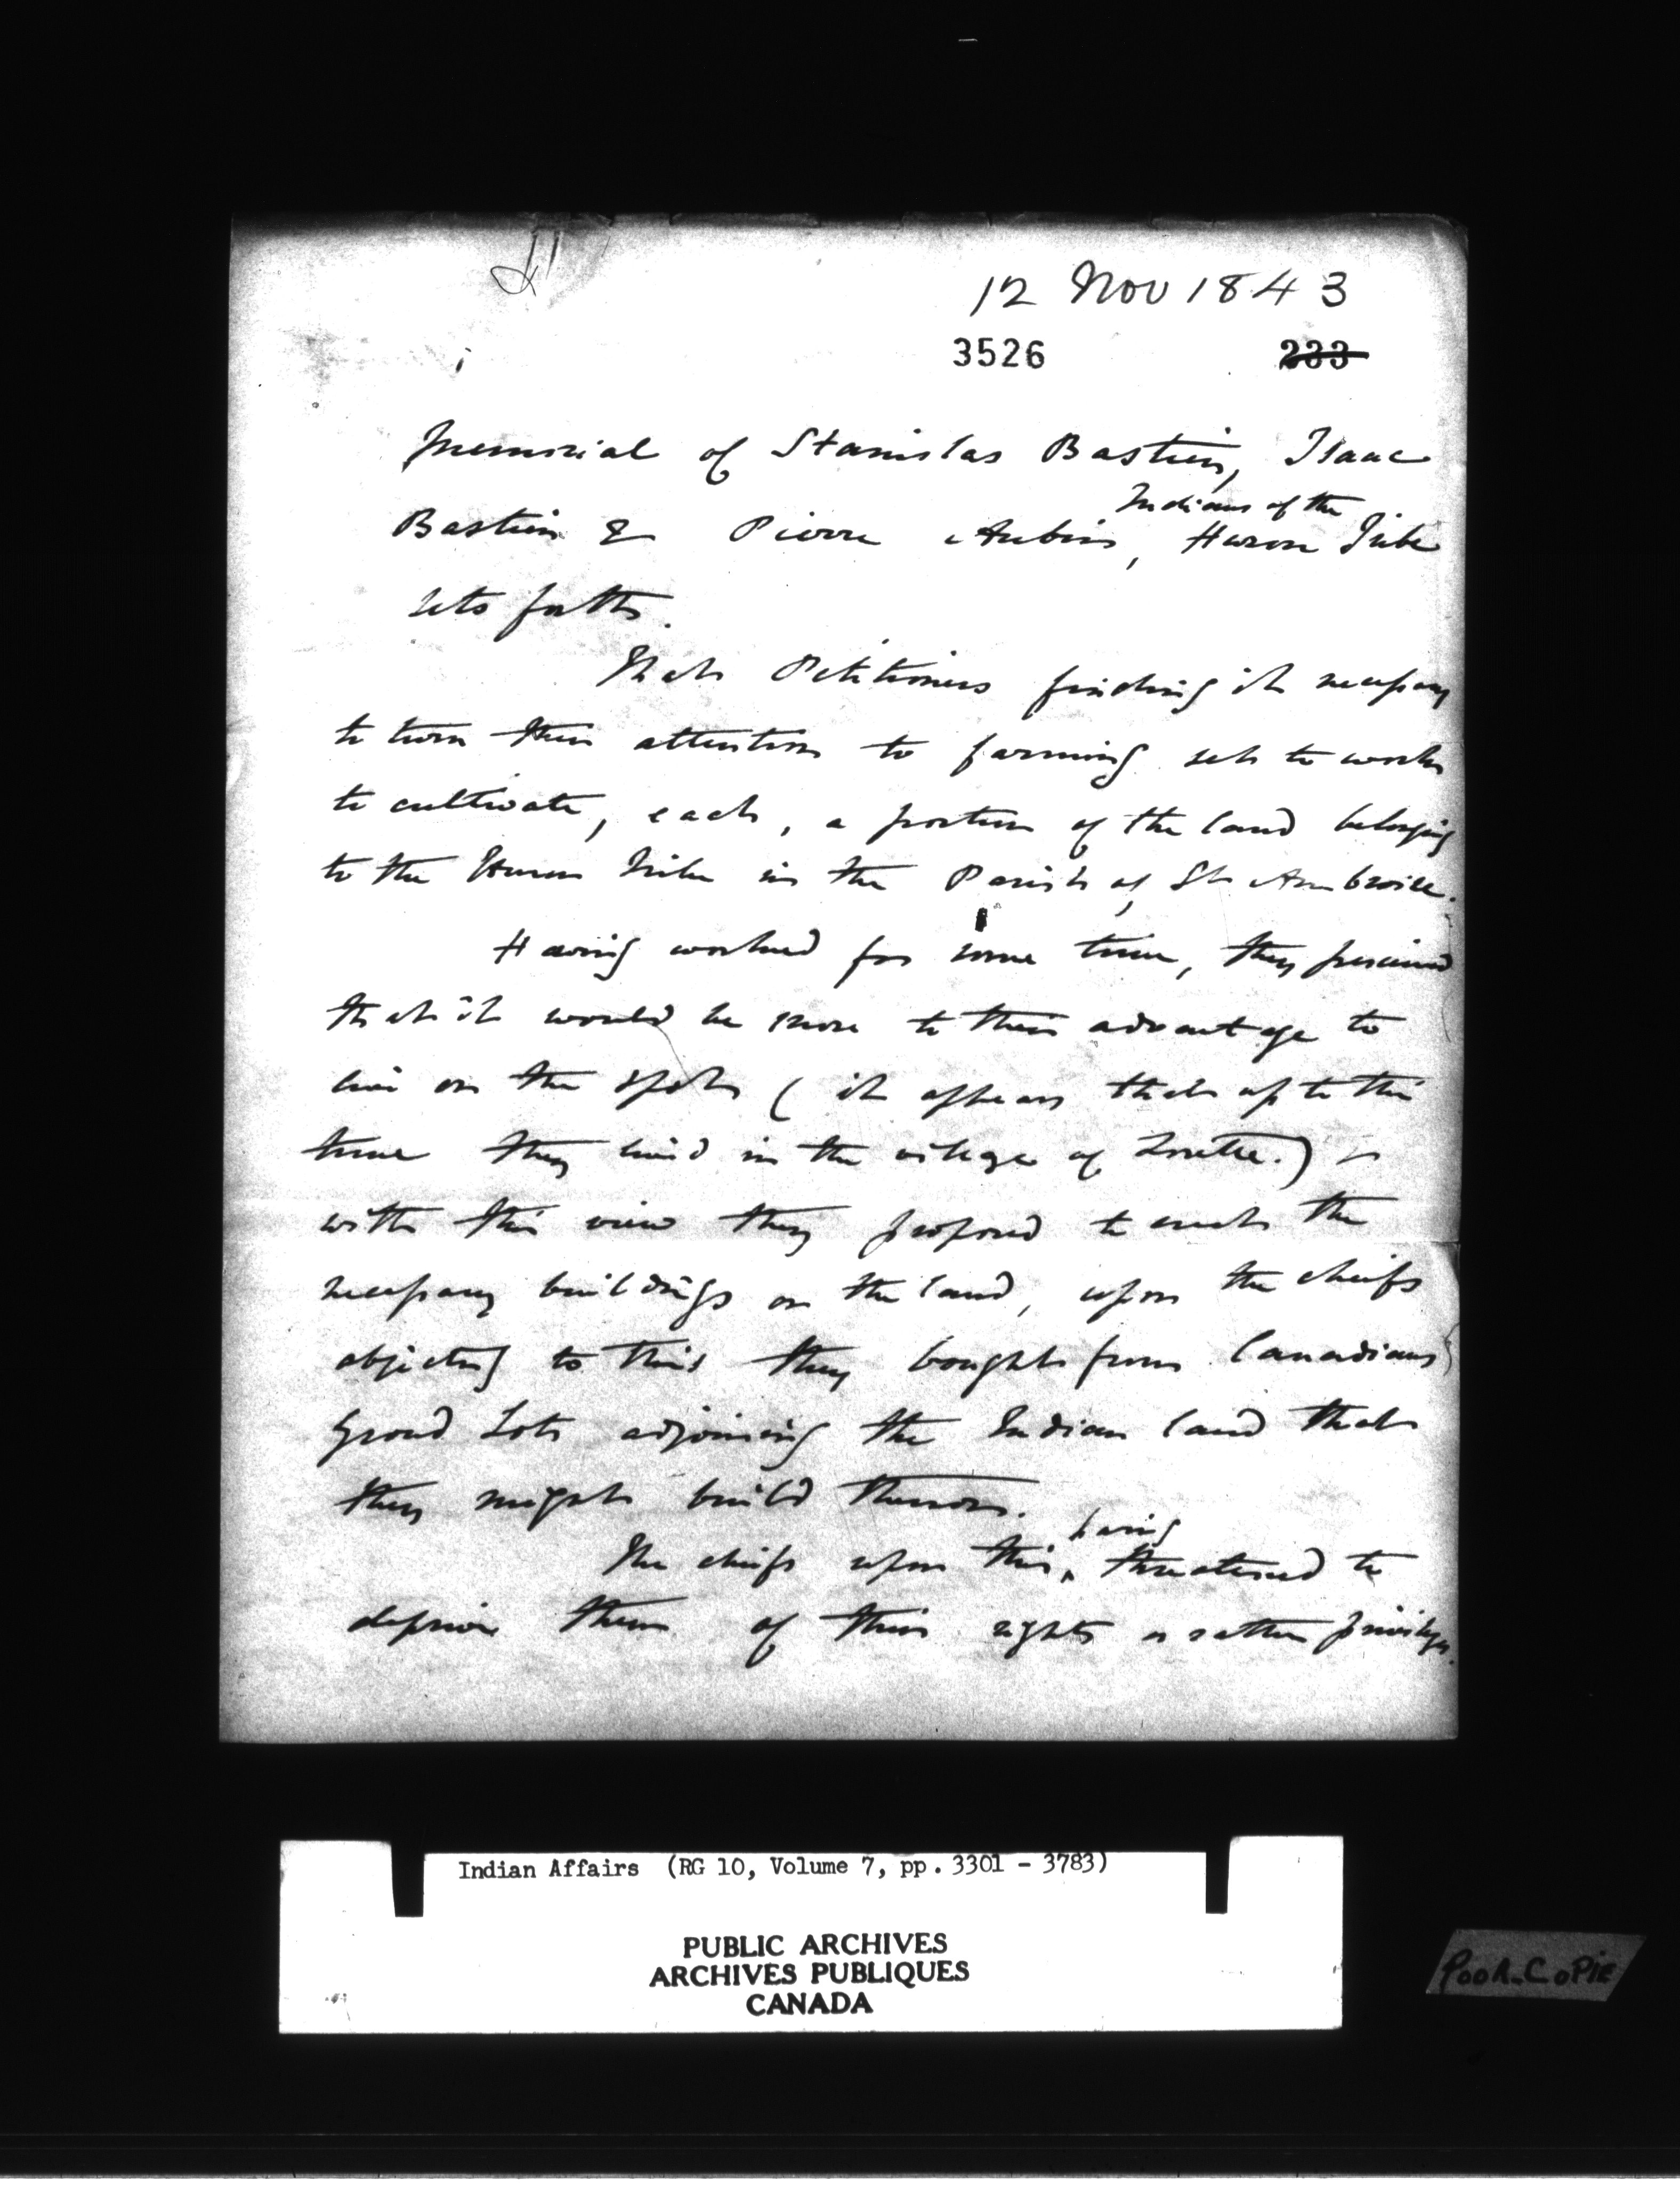 12 Nov 1843
3526 233
Memorial of Stanislas Bastien, Isaac
Indians of the
Bastien & Pierre Aubin, Huron Tribe
sets forth.
That Petitioners finding it necessary
to turn their attention to farming set to work
to cultivate, each, a portion of the land belonging
to the Huron Tribe in the Parish of St Ambroise.
Having worked for some time, they perceived
that it would be more to their advantage to
live on the spot ( it appears that up to this
time they lived in the village of Lorette.) &
with this view they proposed to erect the
necessary buildings on the land, upon the chiefs
objecting to this they bought from Canadians
Ground Lots adjoining the Indian land that
they might build thereon.
having
The chiefs upon this, threatened to
deprive them of their rights or rather privileges.
Indian Affairs (RG 10, Volume 7, pp. 3301 - 3783)
PUBLIC ARCHIVES
ARCHIVES PUBLIQUES
CANADA
POOR-COPIE